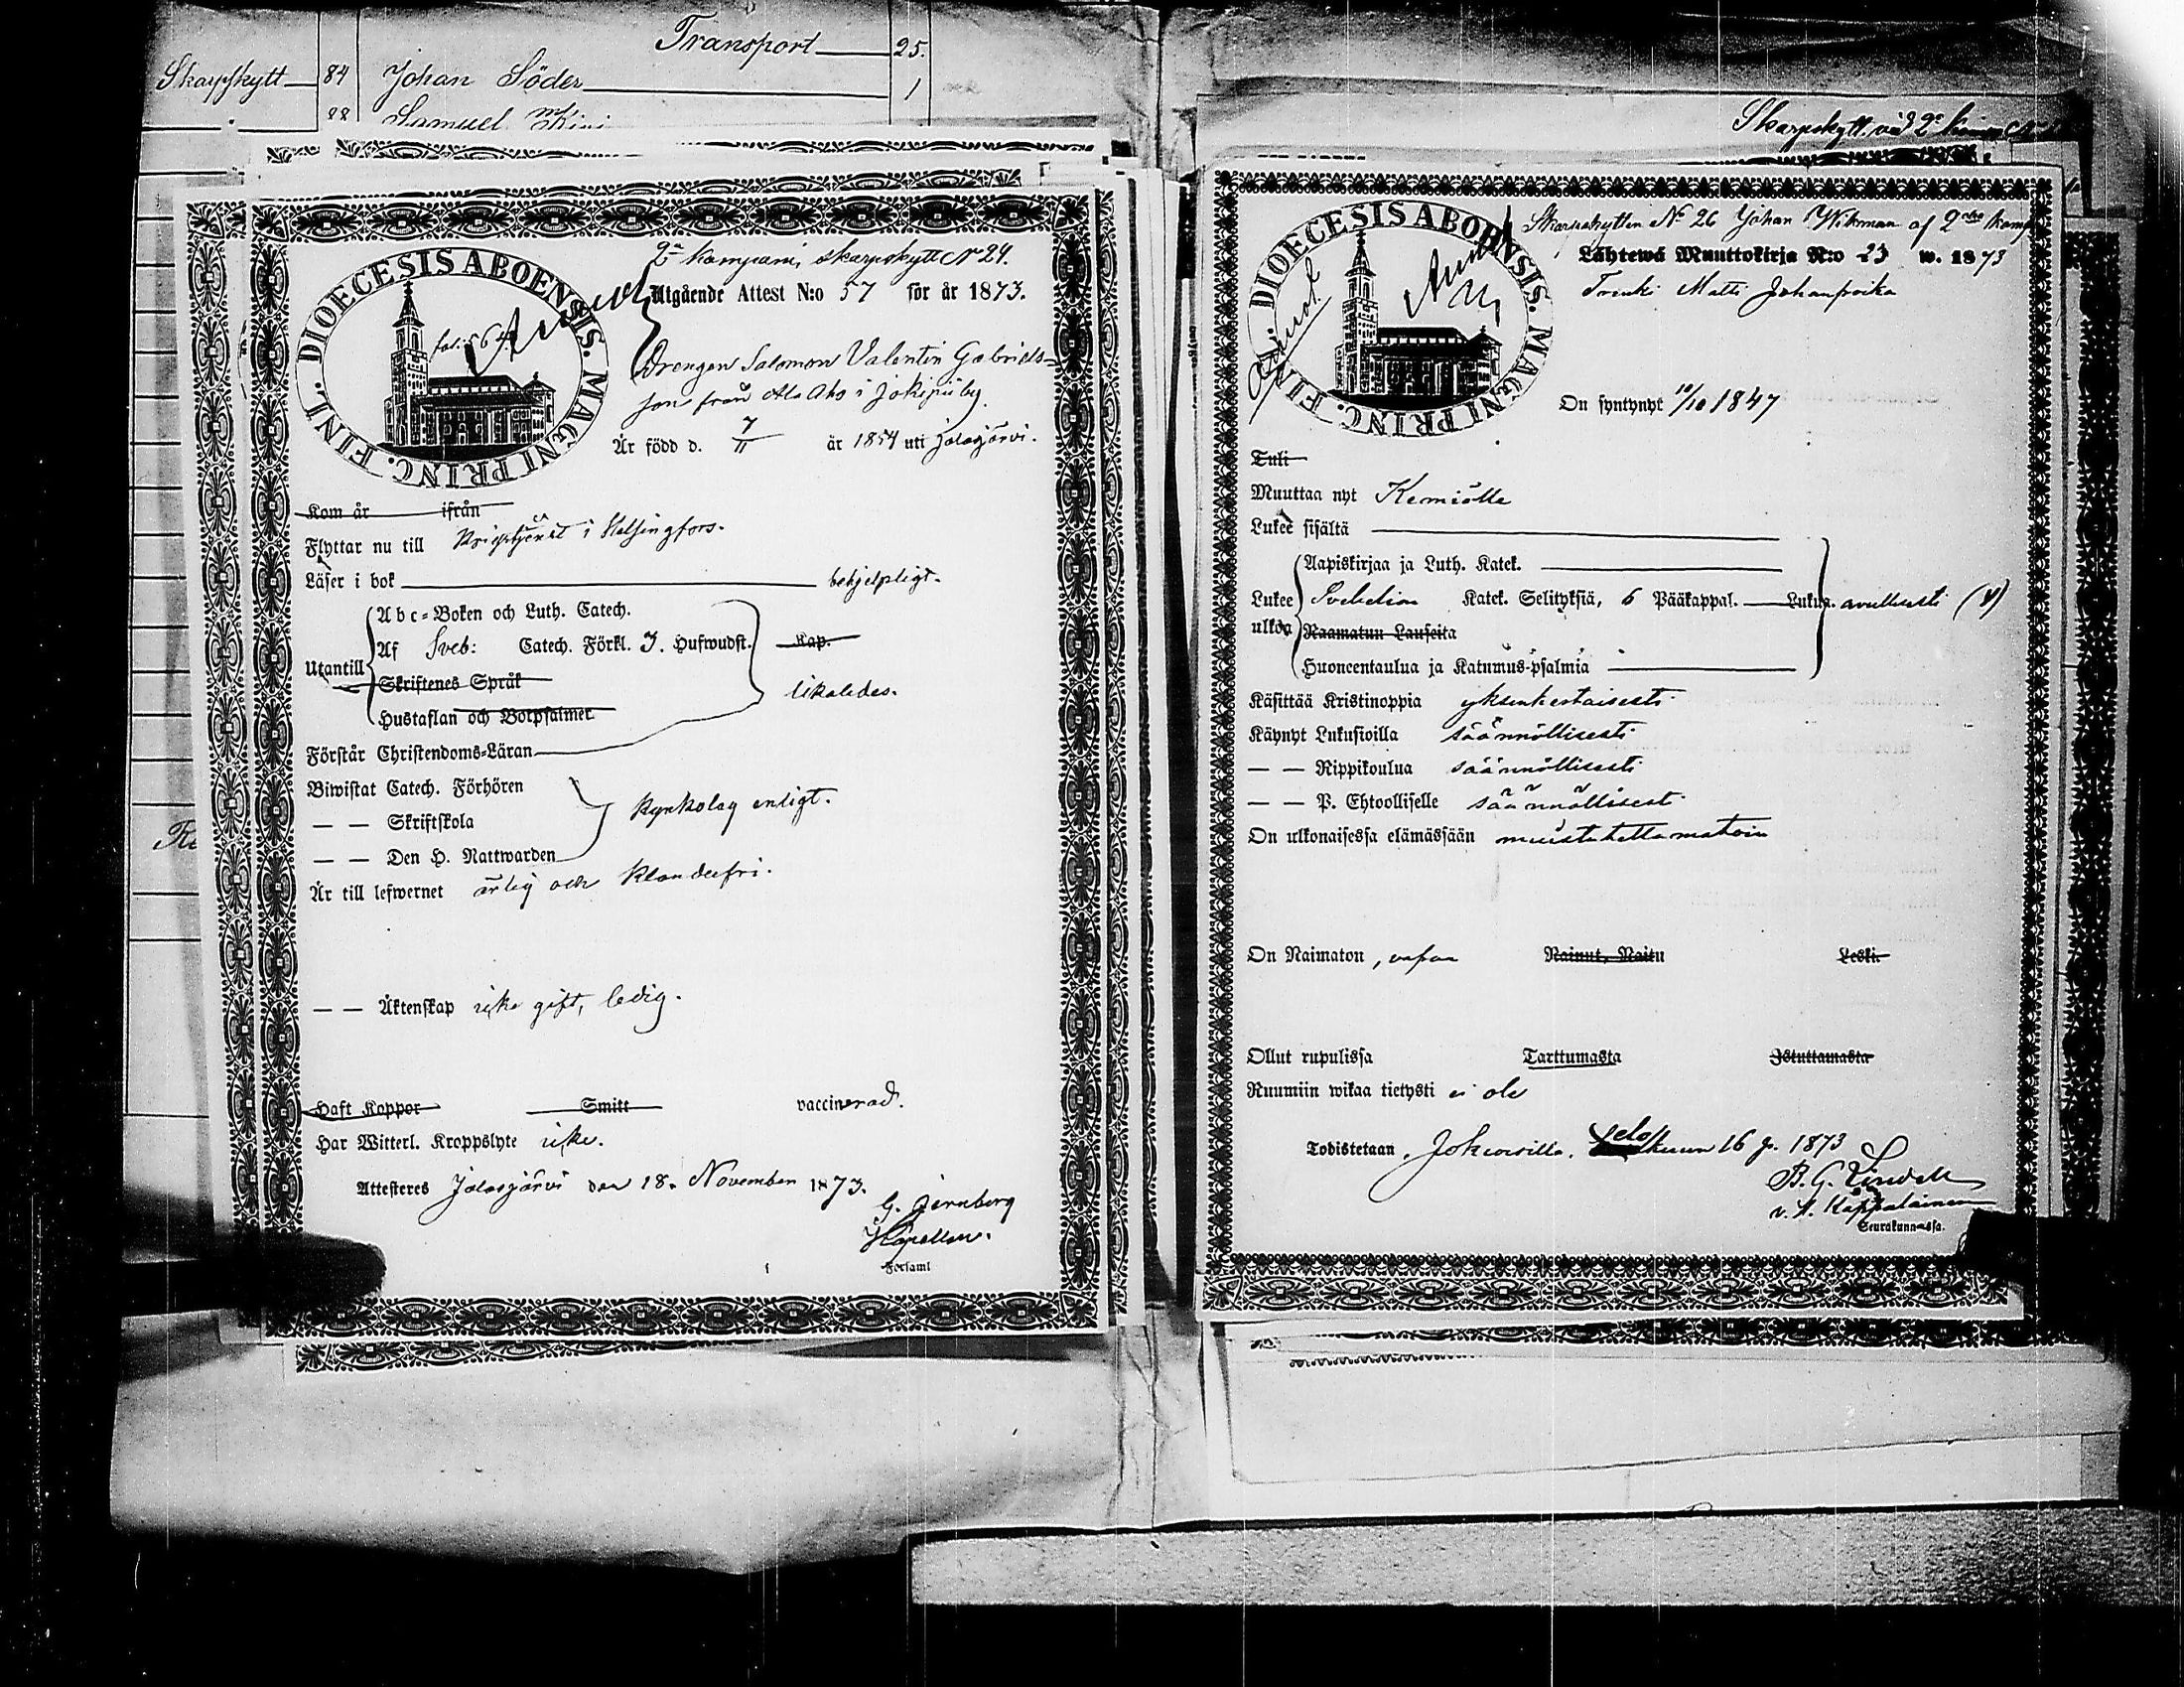 Transport 25.
Skarpskytt 84 Johan Söder 1
88 Samuel
2a kompani, skarpskytt N 24.
DIOECESIS ABOENSIS. MAGNI PRINC. FINL.
Utgående Attest N:o 57 för år 1873.
Drengen Salomon Valentin Gabriels-
son från Ala Aho i Jokipii by
Är född d. 7/11 år 1854 uti Jalasjärvi.
Kom år ifrån
Flyttar nu till Krigstjenst i Helsingfors.
Läser i bok behjelpligt.
Utantill
Abc-Boken och Luth. Catech.
Af Sveb: Catech. Förkl. 3. Hufwudst. Kap.
Skriftenes Språk
likaledes.
Hustaflan och Botpsalmer
Förstår Christendoms-Läran
Biwistat Catech. Förhören
— — Skriftskola
kyrkolag enligt.
— — Den H. Nattwarden
Är till lefwernet ärlig och klanderfri.
— — Äktenskap icke gift, ledig.
Haft Koppor Smitt vaccinerad.
Har Witterl. Kroppslyte icke.
Attesteres Jalasjärvi den 18. November 1873.
G. Jernberg
Kapellan.
Församl
Skarpskytt vid 2a
Skarpskytten N 26 Johan Wikman af 2dra komp
DIOECESIS ABOENSIS. MAGNI PRINC. FINL.
Lähtewä Muuttokirja N:o 23 w. 1873
Matti Johanpoika
On syntynyt 10/10 1847
Tuli
Muuttaa nyt Kemiölle
Lukee sisältä
Lukee ulkoa
Aapiskirjaa ja Luth. Katek.
Svebelion Katek. Selityksiä, 6 Pääkappal. Lukua. avullisesti (4)
Raamatun Lauseita
Huoneentaulua ja Katumus-psalmia
Käsittää Kristinoppia yksinkertaisesti
Käynyt Lukusioilla säännöllisesti
— — Rippikoulua säännöllisesti
— — P. Ehtoolliselle säännöllisesti
On ulkonaisessa elämässään muistutettamatoin
On Naimaton, vapaa Nainut, Naitu Leski.
Ollut rupulissa Tarttumasta Istuttamasta
Ruumiin wikaa tietysti ei ole
Todistetaan, Jokioisilla, elokuun 16 p. 1873
B. G. Lindell
v. t. Kappalainen
Seurakunnassa.